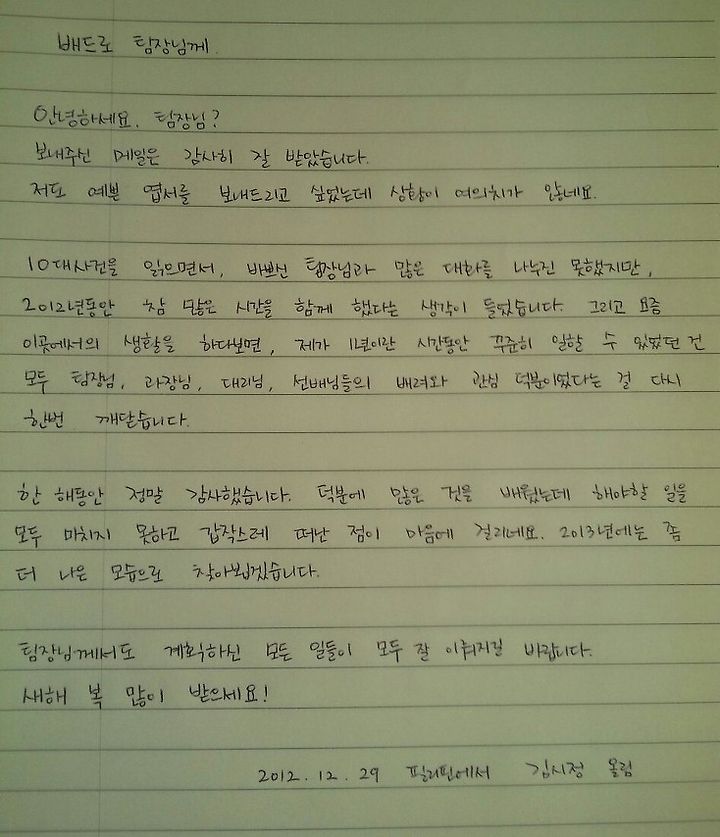 배드로 팀장님께.
안녕하세요, 팀장님?
보내주신 메일은 감사히 잘 받았습니다.
저도 예쁜 엽서를 보내드리고 싶었는데 상황이 여의치가 않네요.
10대사건을 읽으면서, 바쁘신 팀장님과 많은 대화를 나누진 못했지만,
2012년동안 참 많은 시간을 함께 했다는 생각이 들었습니다. 그리고 요즘
이곳에서의 생활을 하다보면, 제가 1년이란 시간동안 꾸준히 일할 수 있었던 건
모두 팀장님, 과장님, 대리님, 선배님들의 배려와 관심 덕분이었다는 걸 다시
한번 깨닫습니다.
한 해동안 정말 감사했습니다. 덕분에 많은 것을 배웠는데 해야할 일을
모두 마치지 못하고 갑작스레 떠난 점이 마음에 걸리네요. 2013년에는 좀
더 나은 모습으로 찾아뵙겠습니다.
팀장님께서도 계획하신 모든 일들이 모두 잘 이뤄지길 바랍니다.
새해 복 많이 받으세요!
2012. 12. 29 필리핀에서 김시정 올림